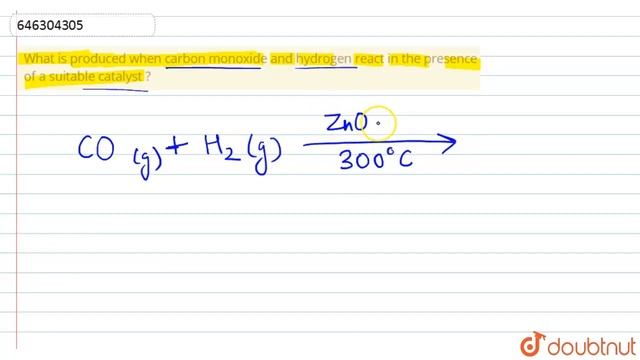 646304305
What is produced when carbon monoxide and hydrogen react in the presence
of a suitable catalyst ?
ZnO.
CO (g) + H₂ (g) ⟶
300°C
doubtnut